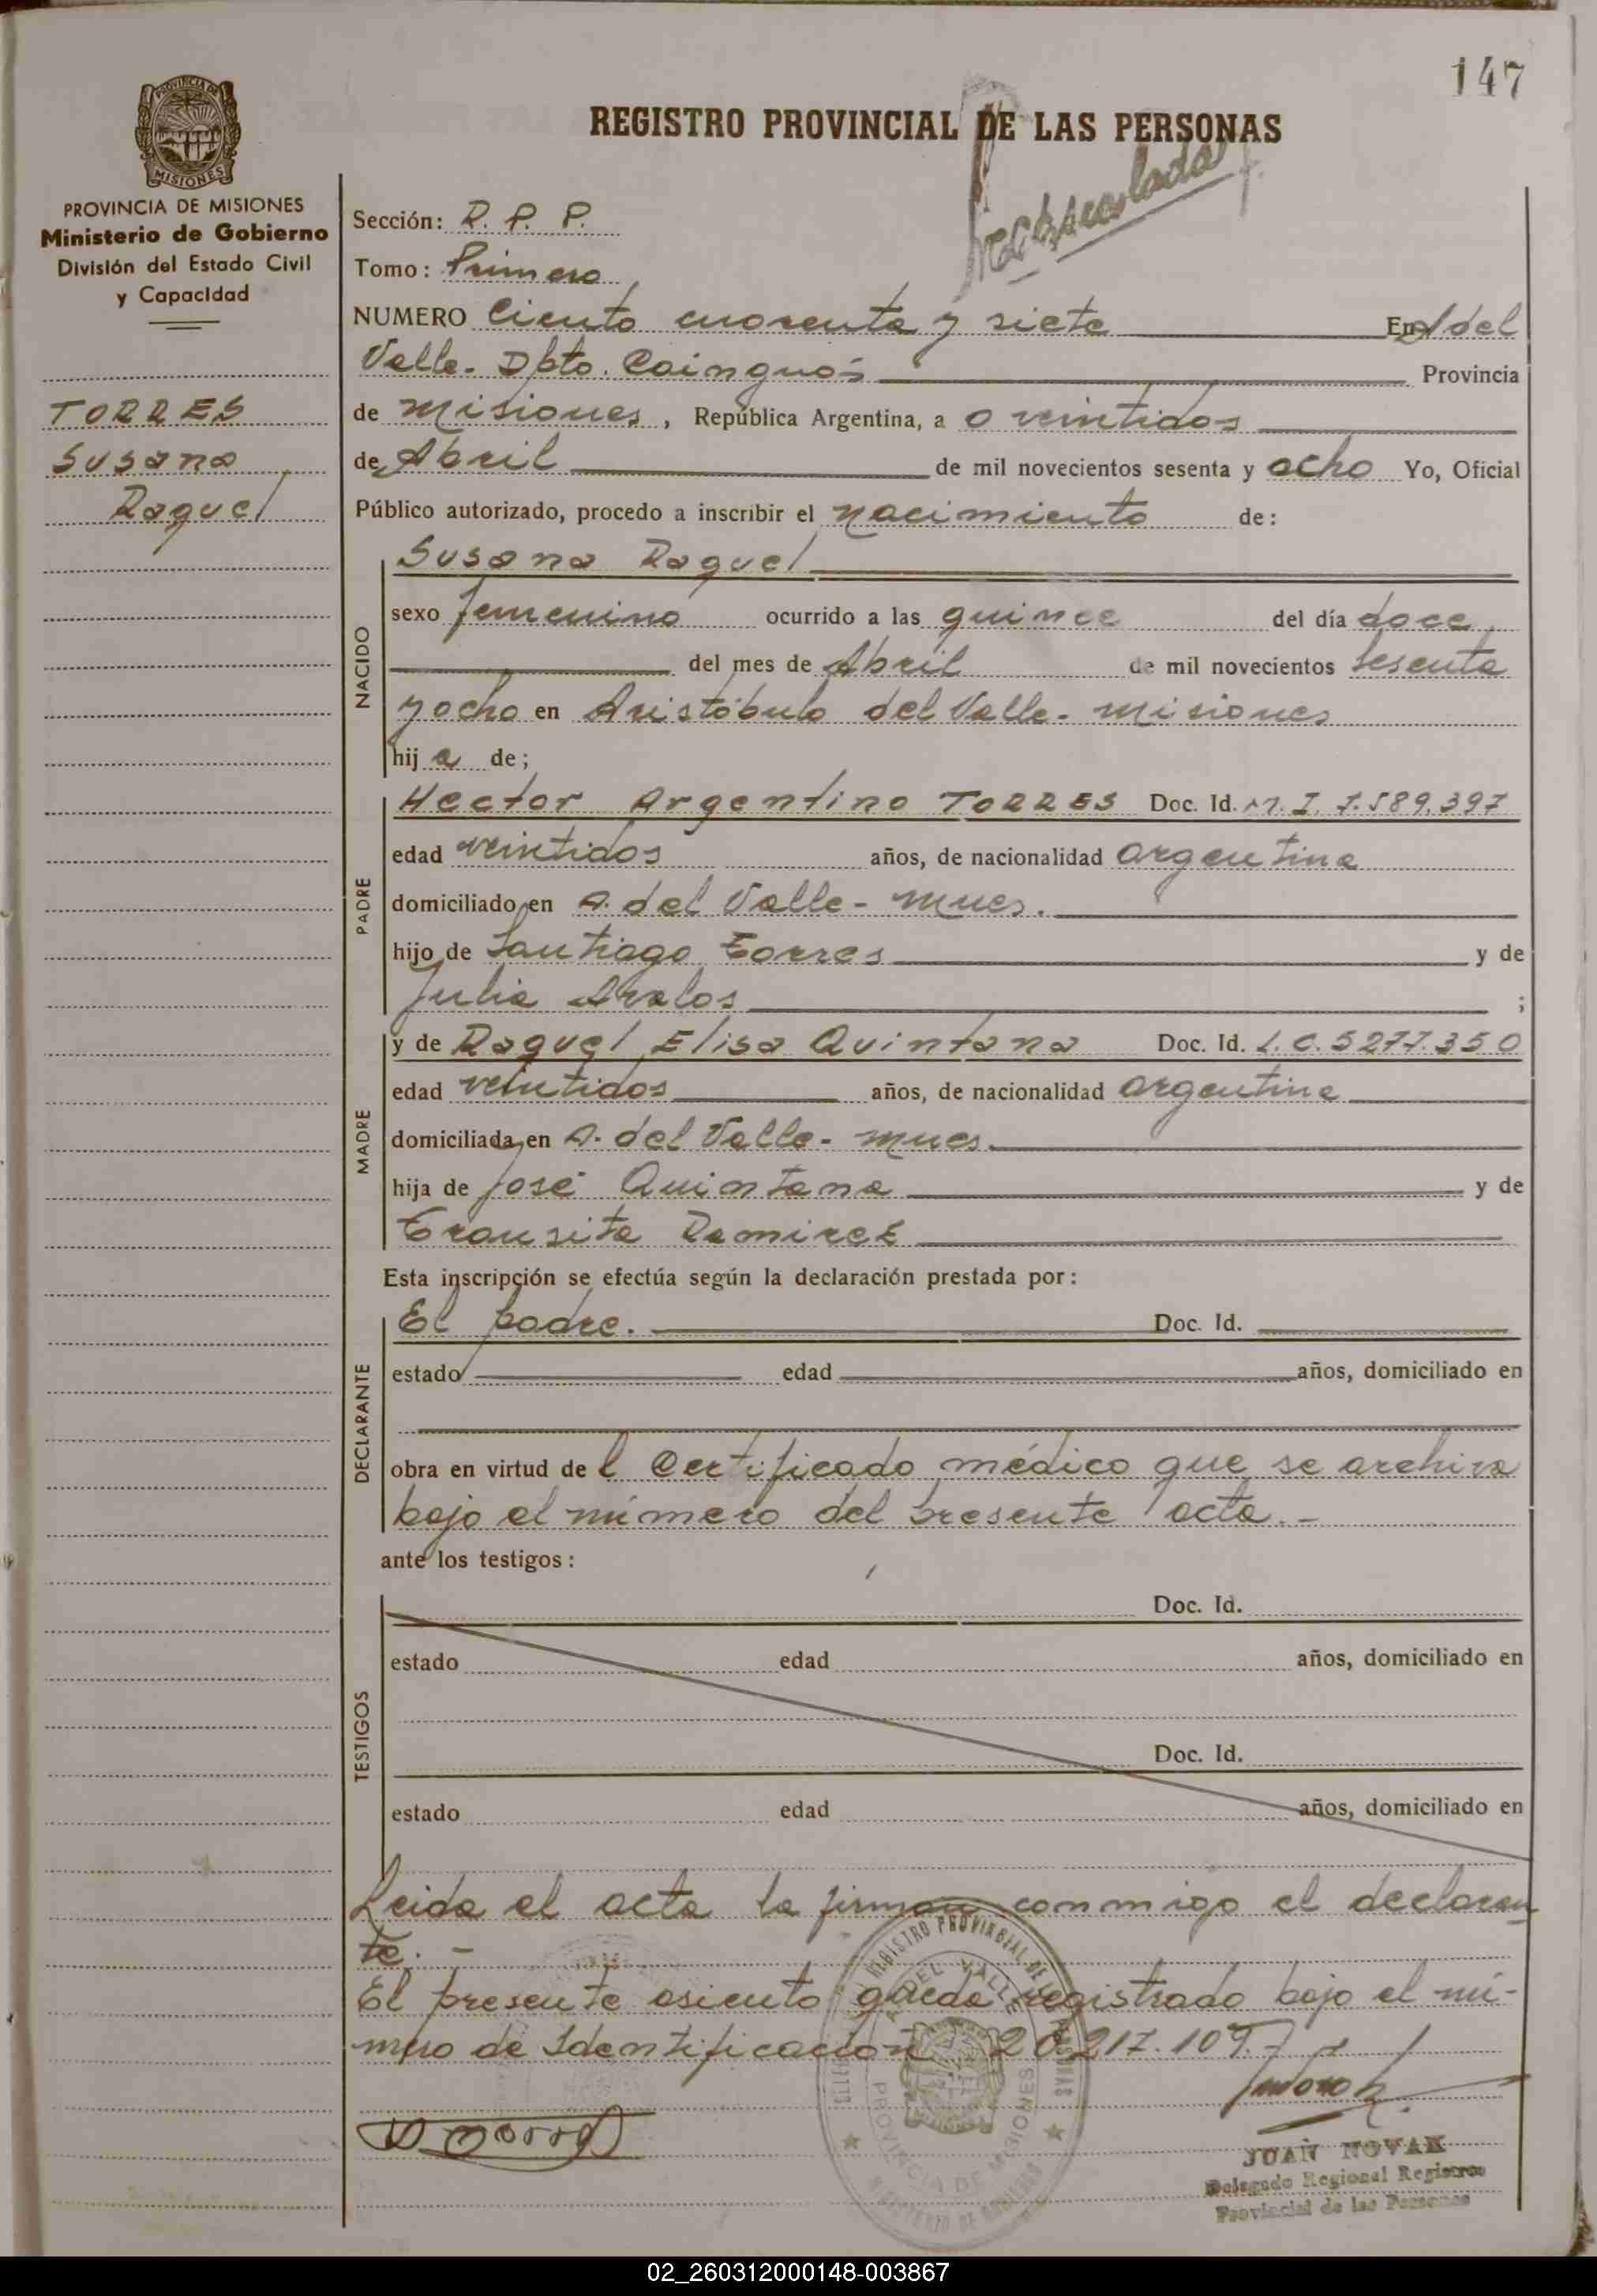 147
REGISTRO PROVINCIAL DE LAS PERSONAS
PROVINCIA DE
MISIONES
PROVINCIA DE MISIONES
Ministerio de Gobierno
División del Estado Civil
y Capacidad
TORRES
Susana
Raquel
Sección: R. P. P.
Tomo: Primero
NUMERO Ciento cuarenta y siete En A del
Valle. Dpto. Cainguás Provincia
de Misiones, República Argentina, a veintidos
de Abril de mil novecientos sesenta y ocho Yo, Oficial
Público autorizado, procedo a inscribir el nacimiento de:
NACIDO
Susana Raquel
sexo femenino ocurrido a las quince del día doce
del mes de Abril de mil novecientos sesenta
y ocho en Aristóbulo del Valle - Misiones
hij a de;
PADRE
Hector Argentino TORRES Doc. Id. M. I. 7.589.397
edad veintidos años, de nacionalidad argentina
domiciliado en A. del Valle - Mnes.
hijo de Santiago Torres y de
Julia Avalos ;
MADRE
y de Raquel Elisa Quintana Doc. Id. L.C. 5277.350
edad veintidos años, de nacionalidad argentina
domiciliada en A. del Valle - Mnes.
hija de José Quintana y de
Transita Ramirez
Esta inscripción se efectúa según la declaración prestada por:
DECLARANTE
El padre. Doc. Id.
estado edad años, domiciliado en
obra en virtud de l Certificado médico que se archiva
bajo el número del presente acta. -
ante los testigos:
TESTIGOS
Doc. Id.
estado edad años, domiciliado en
Doc. Id.
estado edad años, domiciliado en
Leida el acta la firman conmigo el declaran
te. -
El presente asiento queda registrado bajo el nú-
mero de Identificación 20.217.109. -
REGISTRO PROVINCIAL DE LAS PERSONAS
A. DEL VALLE
PROVINCIA DE MISIONES
MINISTERIO DE GOBIERNO
JUAN NOVAK
Delegado Regional Registro
Provincial de las Personas
02_260312000148-003867